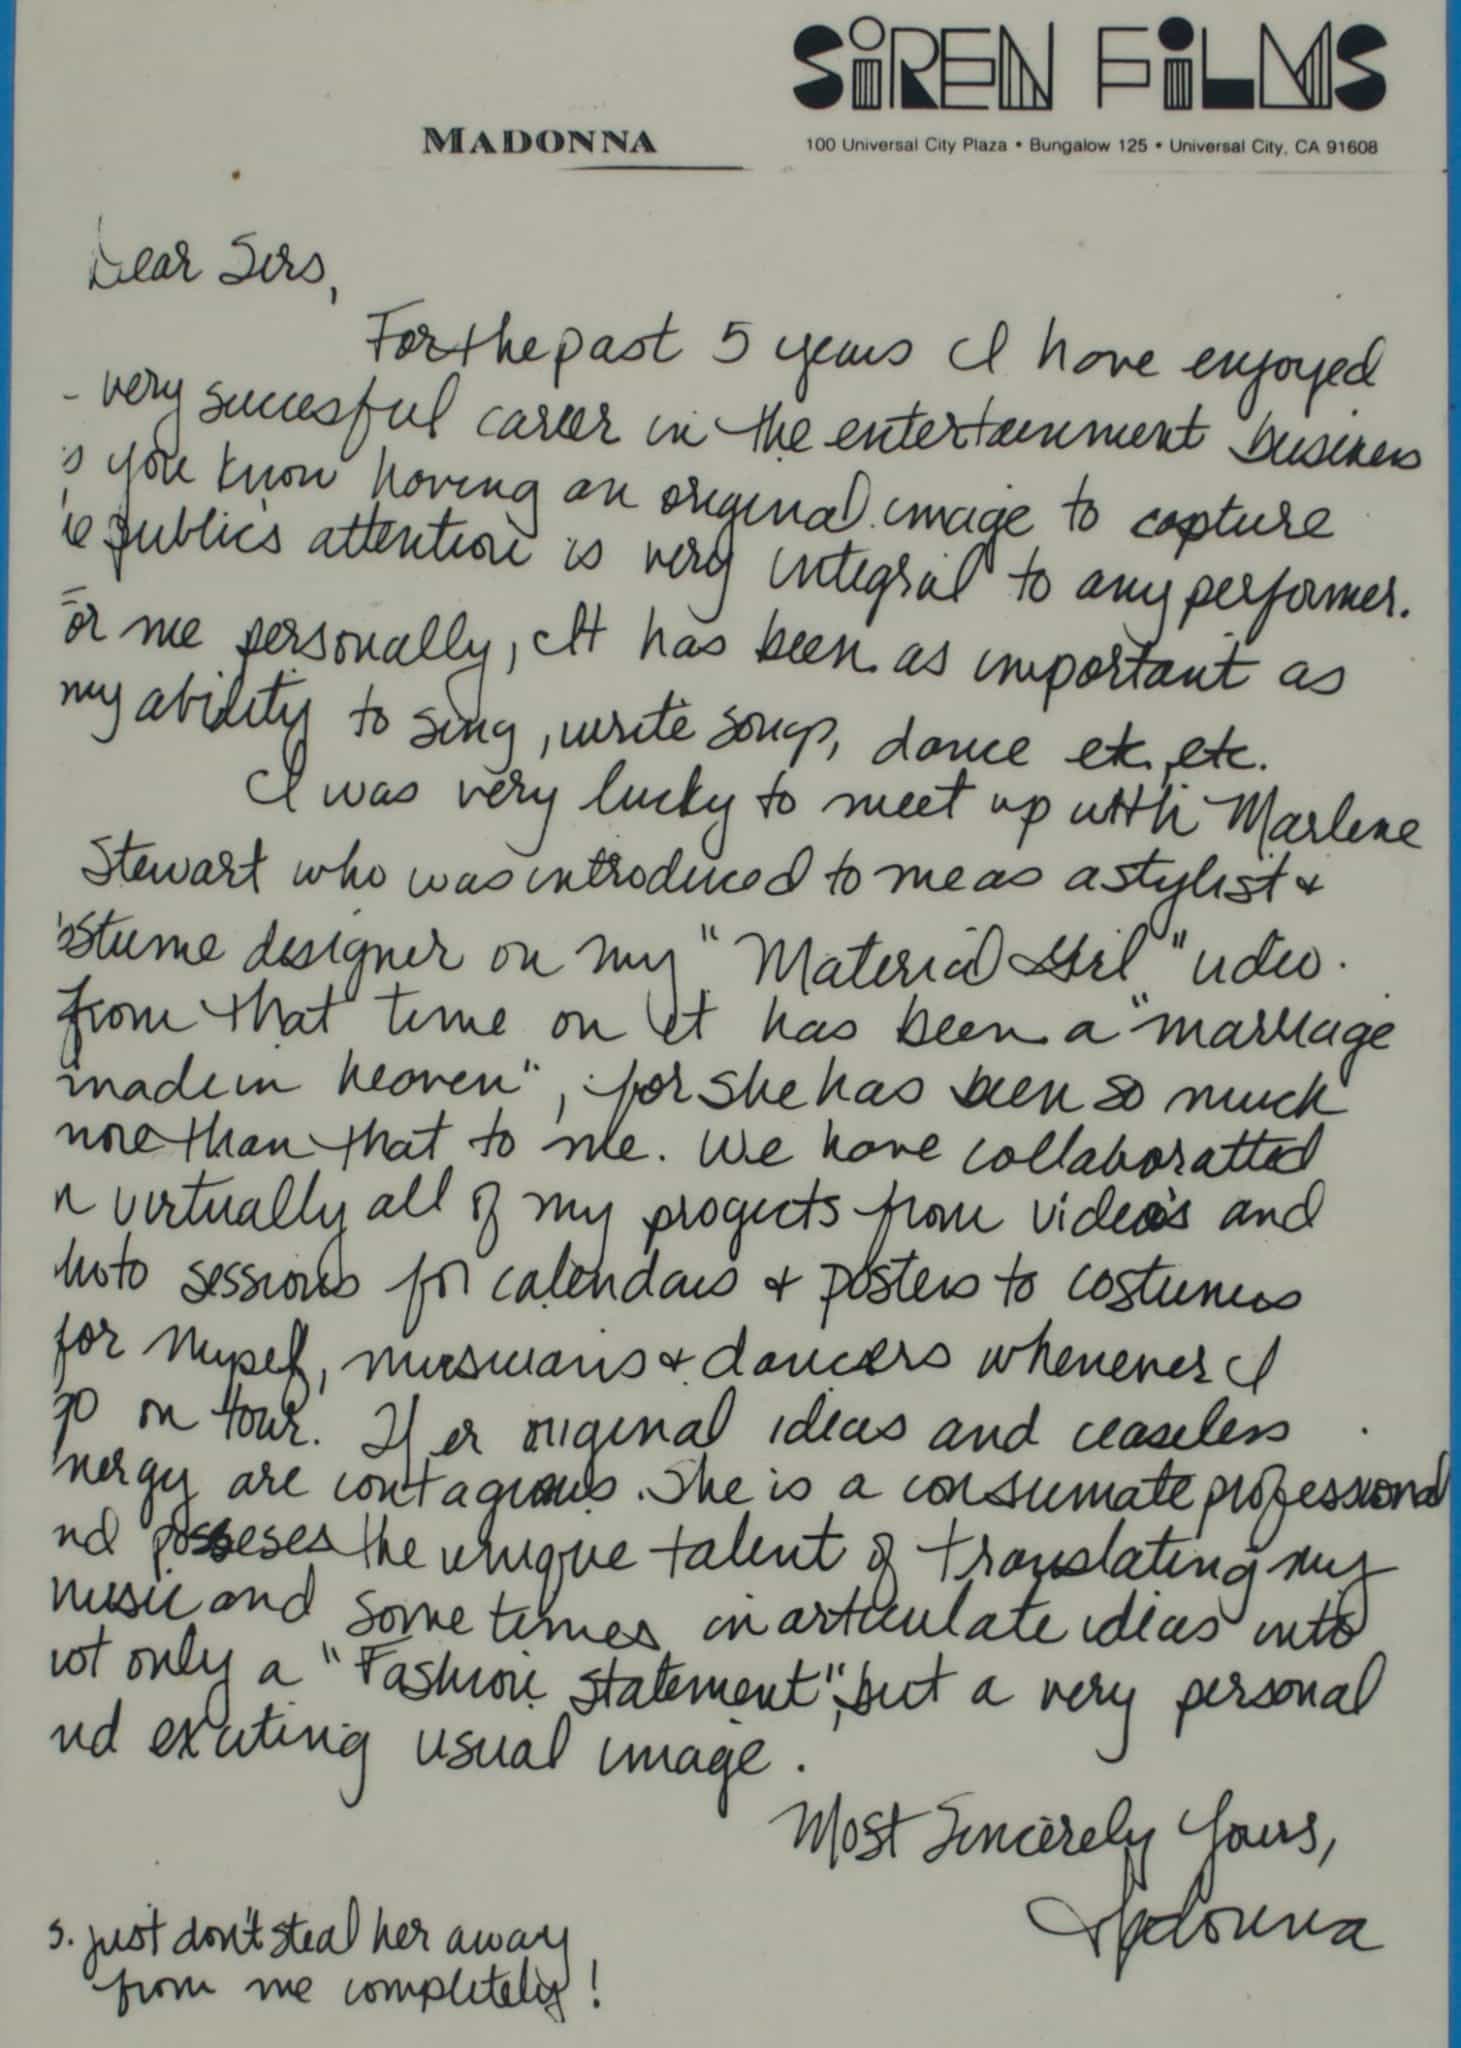 SiREN FiLMS
MADONNA
100 Universal City Plaza • Bungalow 125 • Universal City, CA 91608
Dear Sirs,
For the past 5 years I have enjoyed
very succesful career in the entertainment business
s you know having an original image to capture
e publics attention is very integral to any performer.
or me personally, It has been as important as
my ability to sing, write songs, dance etc, etc.
I was very lucky to meet up with Marlene
Stewart who was introduced to me as a stylist +
ostume designer on my "Material Girl" video.
from that time on it has been a "marriage
made in heaven", for she has been so much
more than that to me. We have collaboratted
n virtually all of my progects from video's and
hoto sessions for calendars + posters to costumes
for myself, musicians + dancers whenever I
go on tour. Her original ideas and ceaseless
nergy are contagious. She is a consumate professional
nd posseses the unique talent of translating my
music and sometimes inarticulate ideas into
not only a "Fashion statement", but a very personal
nd exciting usual image.
Most Sincerely Yours,
Madonna
s. just don't steal her away
from me completely!